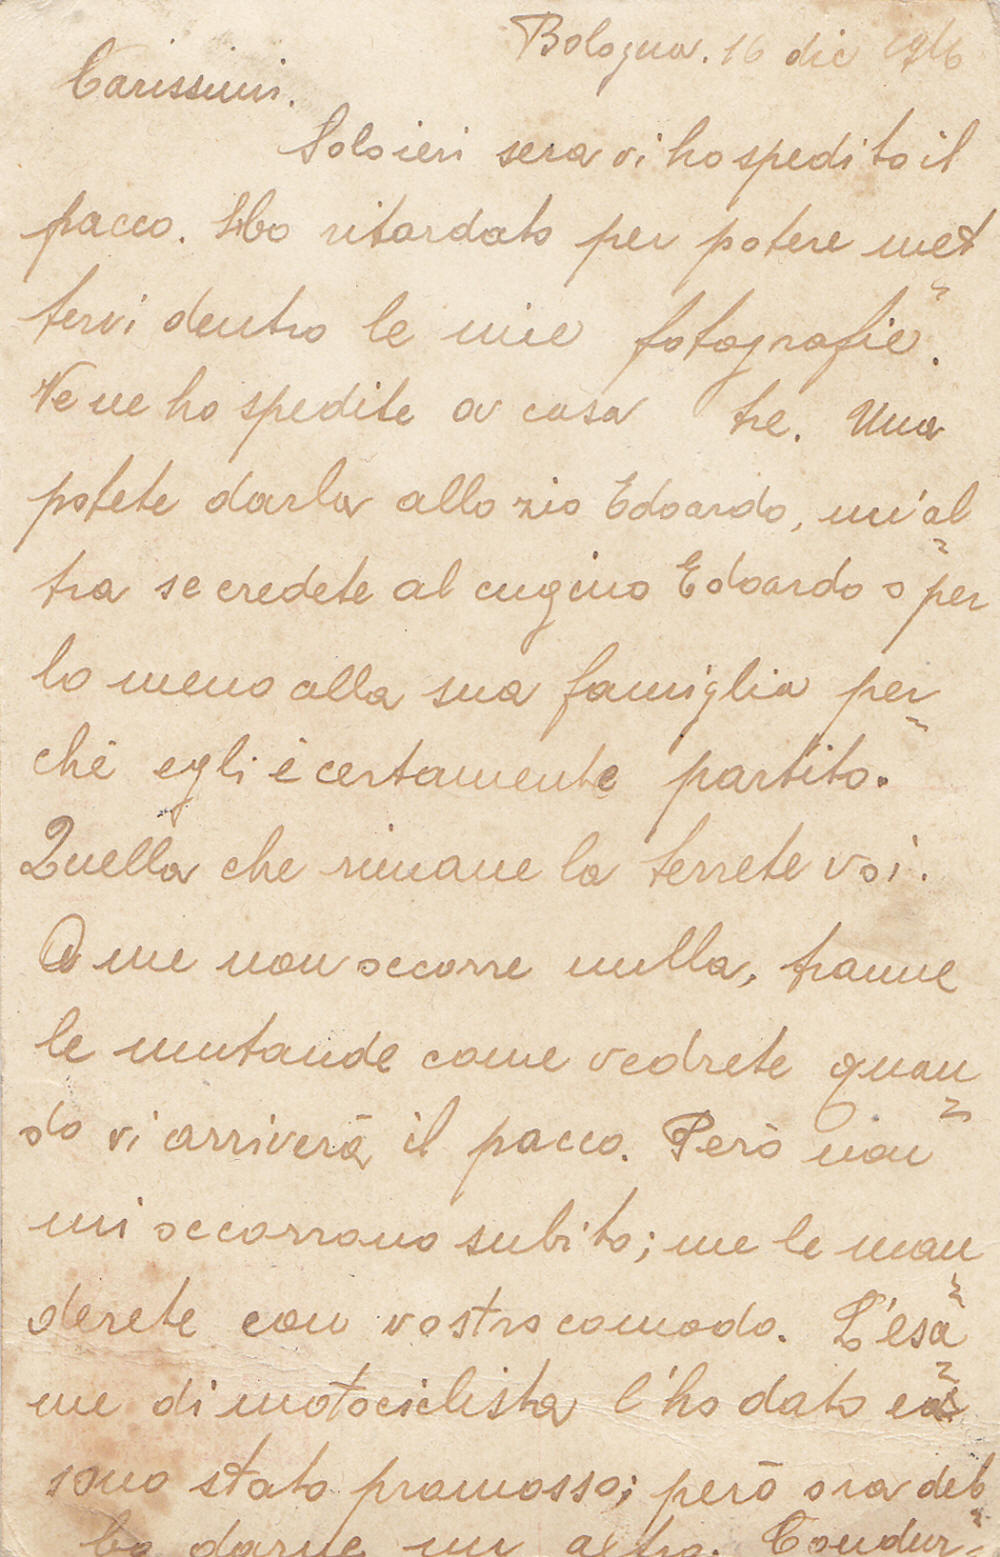 Bologna. 16 dic 1916
Carissimi.
Solo ieri sera vi ho spedito il
pacco. Ho ritardato per potere met
tervi dentro le mie fotografie.
Ve ne ho spedite a casa tre. Una
potete darla allo zio Edoardo, un'al
tra se credete al cugino Edoardo o per
lo meno alla sua famiglia per
chè egli è certamente partito.
Quella che rimane la terrete voi.
A me non occorre nulla, tranne
le mutande come vedrete quan
do vi arriverà il pacco. Però non
mi occorrono subito; me le man
derete con vostro comodo. L'esa
me di motociclista l'ho dato e
sono stato promosso; però ora deb
bo darne un altro. Condur-